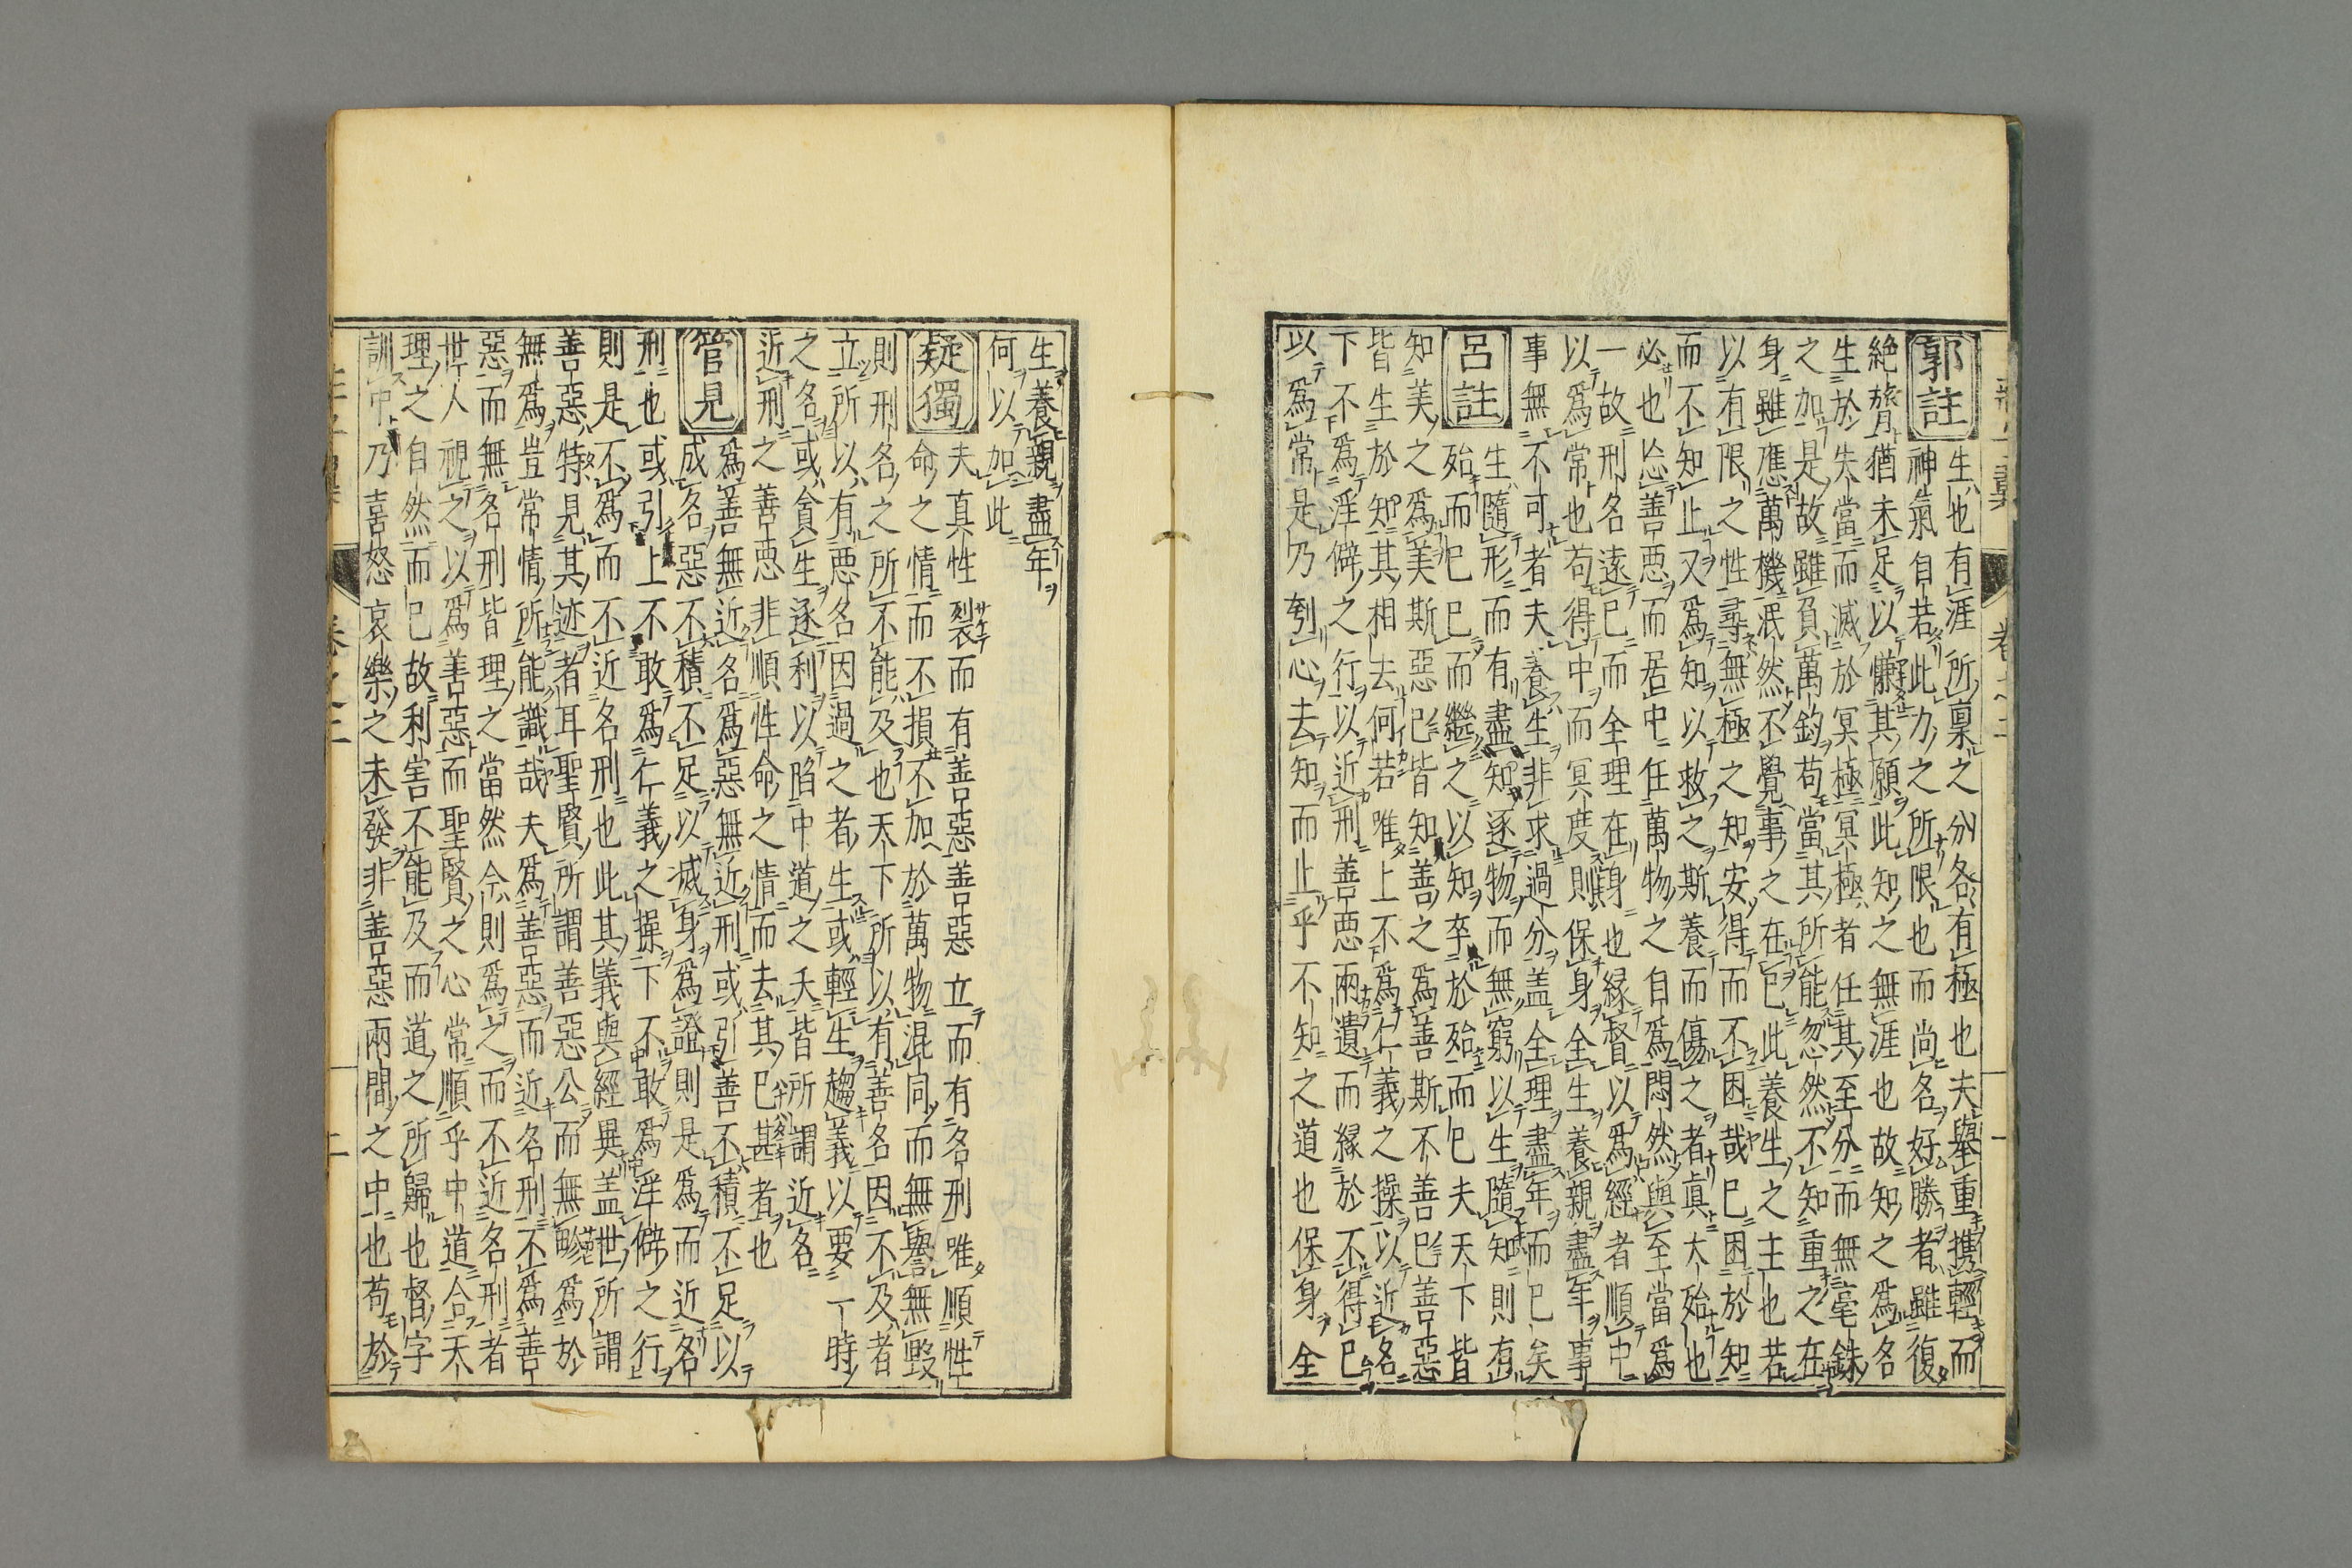 郭註
生也有涯所稟之分各有極也夫舉重携輕而
神氣自若此力之所限也而尚名好勝者雖復
絶膂猶未足以慊其願此知之無涯也故知之爲名
生於失當而滅於冥極冥極者任其至分而無毫銖
之加是故雖負萬鈞苟當其所能忽然不知重之在
身雖應萬機泯然不覺事之在已此養生之主也若
以有限之性尋無極之知安得而不困哉巳困於知
而不知止又爲知以救之斯養而傷之者眞大殆也
必也忘善惡而居中任萬物之自爲悶然與至當爲
一故刑名遠巳而全理在身也緣督以爲經者順中
以爲常也苟得中而冥度則保身全生養親盡年事
事無不可者夫養生非求過分盖全理盡年而巳矣
呂註
生隨形而有盡知逐物而無窮以生隨知則有
殆而巳巳而繼之以知卒於殆而巳夫天下皆
知美之爲美斯惡巳皆知善之爲善斯不善巳善惡
皆生於知其相去何若唯上不爲仁義之操以近名
下不爲淫僻之行以近刑善惡兩遺而緣於不得巳
以爲常是乃刳心去知而止乎不知之道也保身全
生養親盡年
何以加此
疑獨
夫真性裂而有善惡善惡立而有名刑唯順性
命之情而不損不加於萬物混同而無譽無毀
則刑名之所不能及也天下所以有善名因不及者
立所以有惡名因過之者生或輕生趨義以要一時
之名或貪生逐利以陷中道之夭皆所謂近名
近刑之善惡非順性命之情而去其巳甚者也
管見
爲善無近名爲惡無近刑或引善不積不足以
成名惡不積不足以滅身爲證則是爲而近名
刑也或引上不敢爲仁義之操下不敢爲淫僻之行
則是不爲而不近名刑也此其義與經異盖世所謂
善惡特見其迹者耳聖賢所謂善惡公而無畛爲於
無爲豈常情所能識哉夫爲善惡而近名刑不爲善
惡而無名刑皆理之當然今則爲之而不近名刑者
世人視之以爲善惡而聖賢之心常順乎中道合天
理之自然而巳故利害不能及而道之所歸也督字
訓中乃喜怒哀樂之未發非善惡兩間之中也苟於